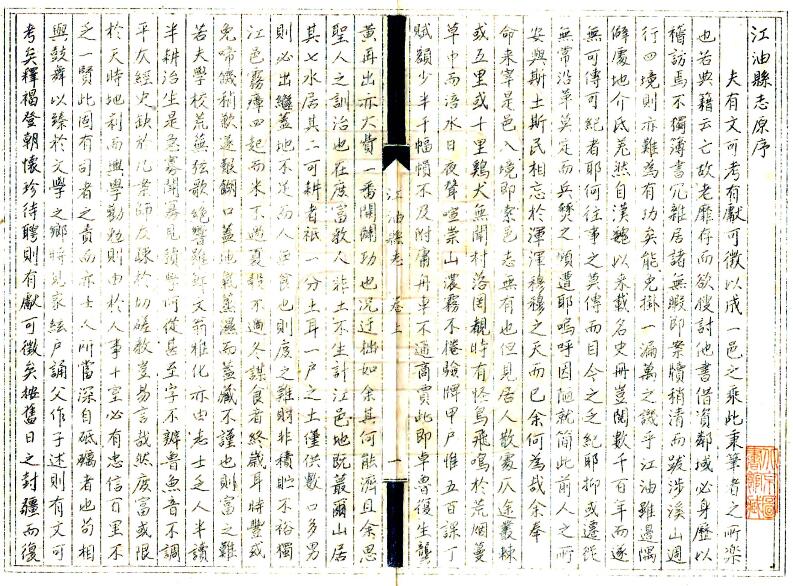 江油縣志原序
夫有文可考有獻可徵以成一邑之乘此秉筆者之所樂
也若典籍云亡故老靡存而欲搜討他書借資鄰域必身歷以
稽訪焉不獨簿書冗雜居諸無暇即案牘稍清而跋涉溪山週
行四境則亦難為有功矣能免掛一漏萬之譏乎江油雖邊隅
僻處地介氐羌然自漢魏以來載名史冊豈閱數千百年而遂
無可傳可紀者耶何往事之莫傳而目今之乏紀耶抑或遷從
無常沿革莫定而兵燹之頻遭耶嗚呼因陋就簡此前人之所
安與斯土斯民相忘於渾渾穆穆之天而已余何為哉余奉
命來宰是邑入境即索邑志無有也但見居人散處仄途叢棘
或五里或十里鷄犬無聞村落罔覩時有怪鳥飛鳴於荒烟蔓
草中而涪水日夜聲喧崇山濃霧不捲驗牌甲戶惟五百課丁
賦額少半千幅幀不及附庸舟車不通商賈此即卓魯復生龔
江油縣志 卷上 一
黃再出亦大費一番開闢功也況迂拙如余其何能濟且余思
聖人之訓治也在庶富教人非土不生計江邑地既叢爾山居
其七水居其二可耕者祇一分土耳一戶之土僅供數口多男
則必出繼蓋地不足而人無食也則庶之難財非積貯不裕獨
江邑霧瘴四起而米不過夏穀不過冬謀食者終歲耳時豐或
免啼饑稍歉遂艱餬口蓋地氣蒸濕而蓋藏不謹也則富之難
若夫學校荒蕪絃歌絶響雖斯文翁雅化亦由志士乏人半讀
半耕治生是急寡聞寡見請學何從甚至字不辨魯魚音不調
平仄經史缺於几案師友疎於切磋教豈易言哉然庶富或限
於天時地利而興學勸勉則由於人事十室必有忠信百里不
乏一賢此固有司者之責而亦士人所當深自砥礪者也苟相
與鼓舞以臻於文學之鄉時見家絃戶誦父作子述則有文可
考矣釋褐登朝懷珍待聘則有獻可徵矣按舊日之封疆而復